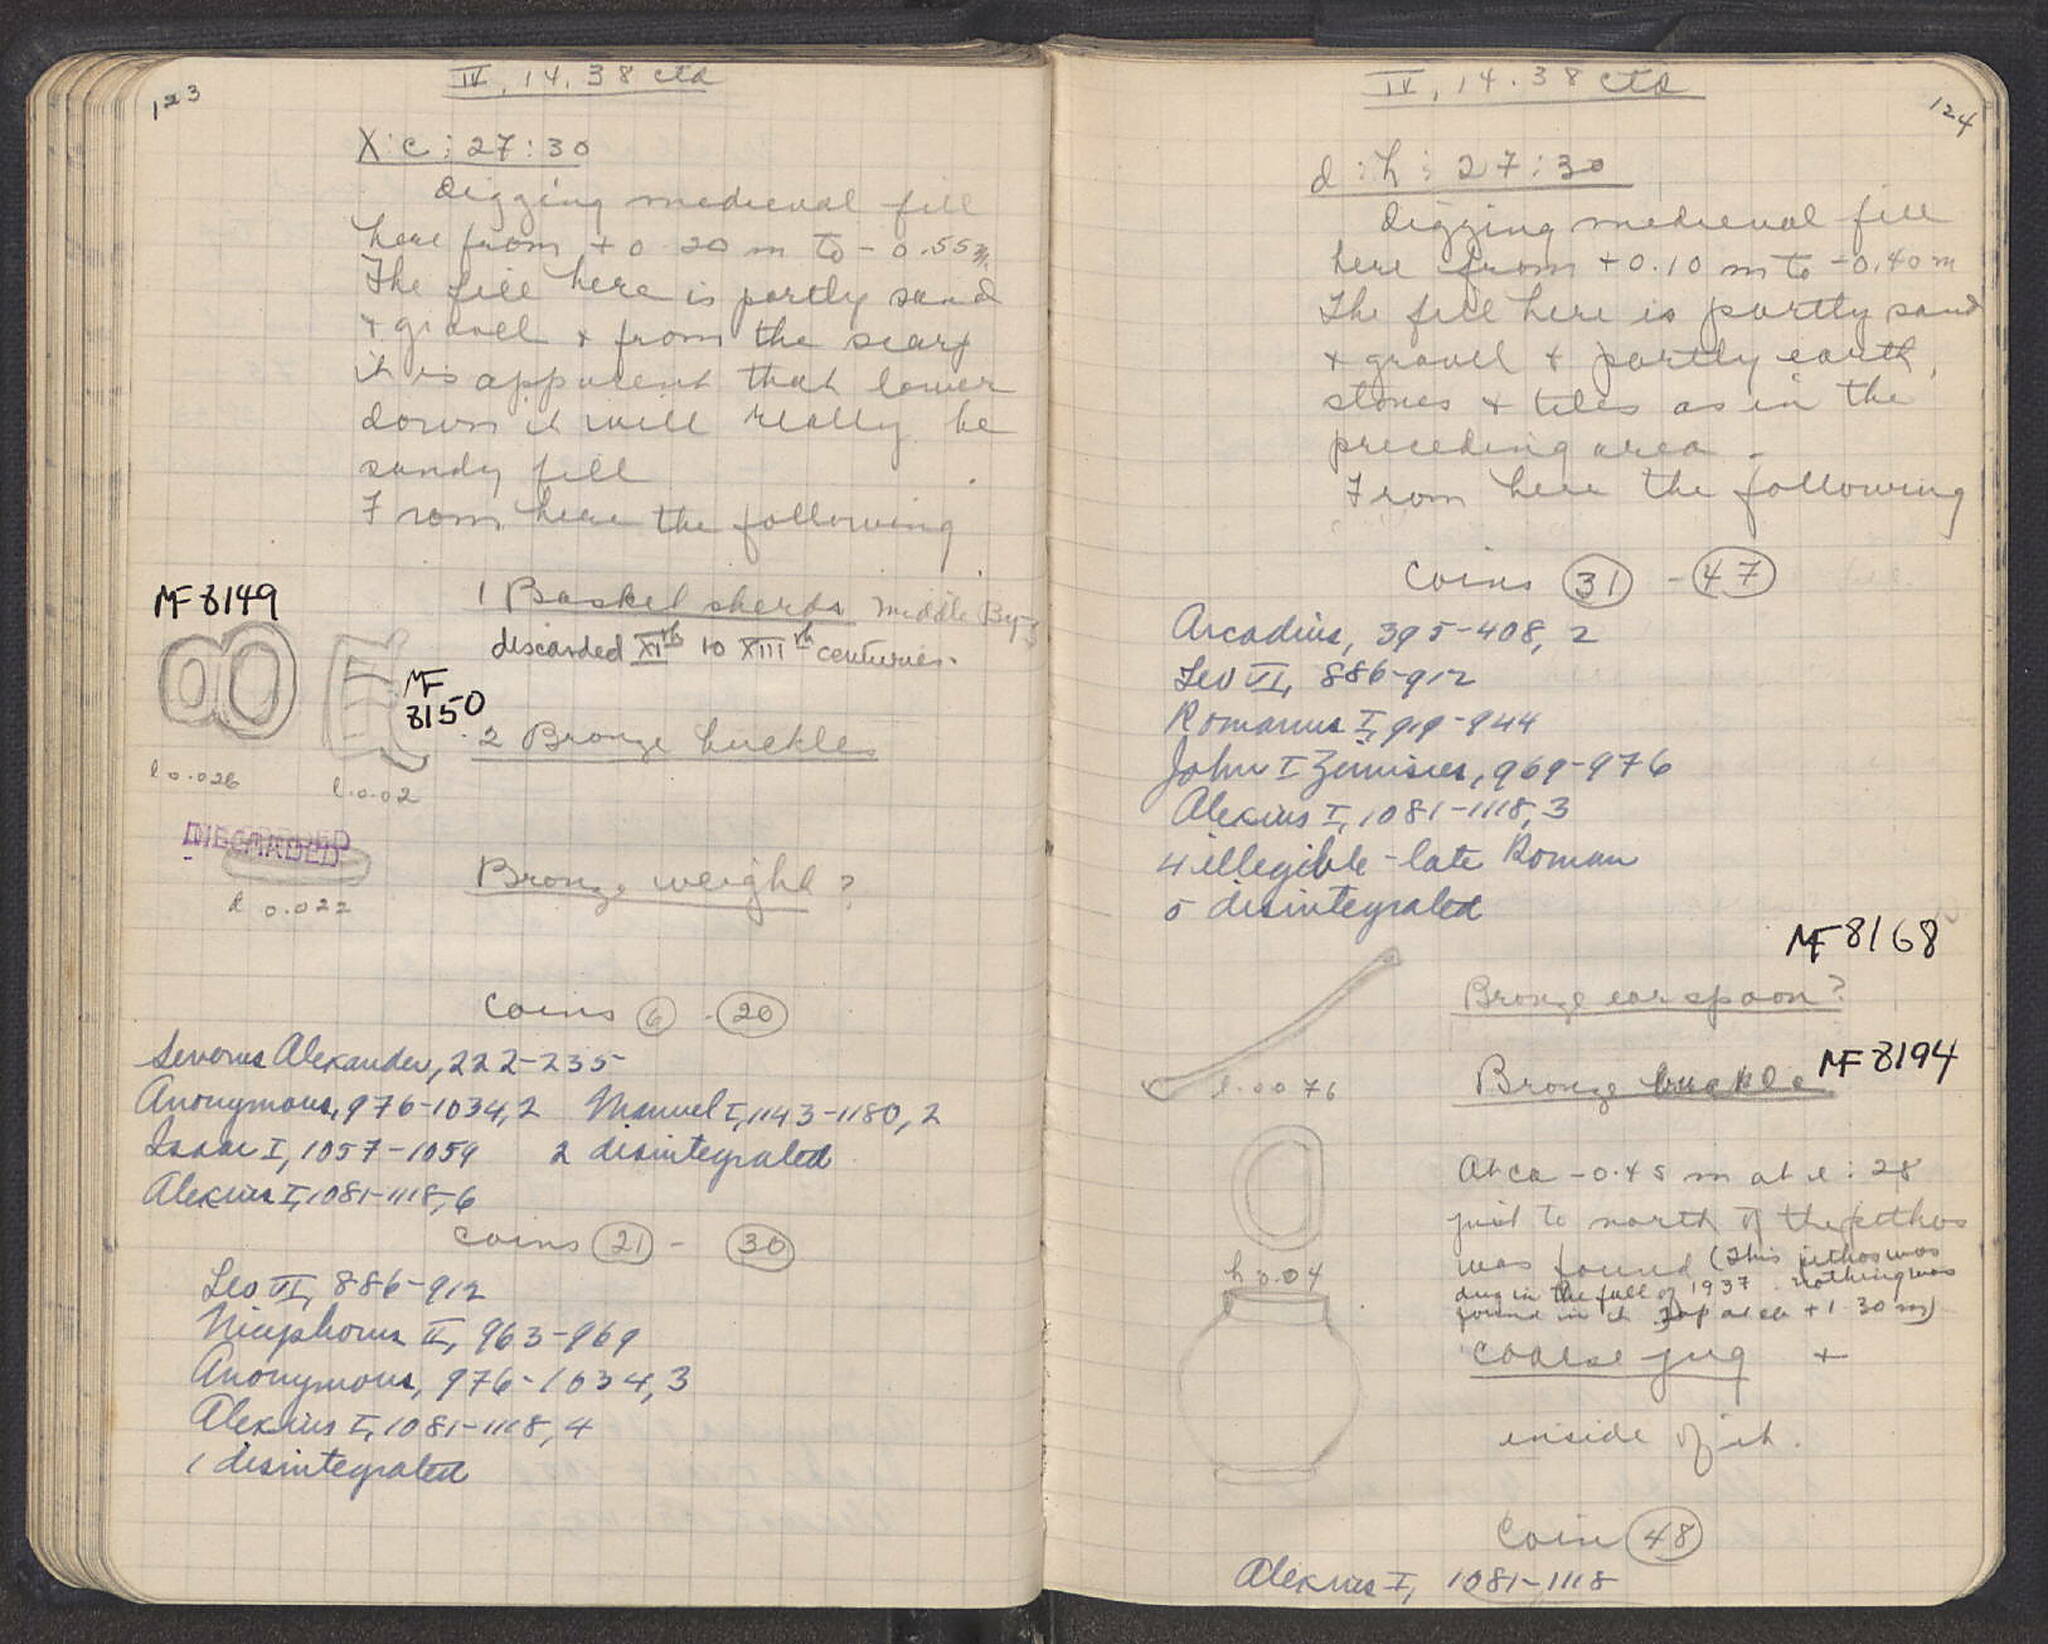 123
IV, 14.38 ctd
X:c ; 27:30
Digging medieval fill
here from +0.20 m to -0.55 m.
The fill here is partly sand
+ gravel + from the scarp
it is apparent that lower
down it will really be
sandy fill
From here the following
MF 8149
1 Basket sherds Middle Byz
discarded XIth to XIIIth centuries.
MF
8150
2 Bronze buckles
l 0.026
l. 0.02
DISCARDED
Bronze weight?
d 0.022
Coins 6 - 20
Severus Alexander, 222-235
Anonymous, 976-1034, 2 Manuel I, 1143-1180, 2
Isaac I, 1057-1059 2 disintegrated
Alexius I, 1081-1118, 6
Coins 21 - 30
Leo VI, 886-912
Nicephorus II, 963-969
Anonymous, 976-1034, 3
Alexius I, 1081-1118, 4
1 disintegrated
124
IV, 14.38 ctd
d:h ; 27:30
Digging medieval fill
here from +0.10 m to -0.40 m
The fill here is partly sand
+ gravel + partly earth,
stones + tiles as in the
preceding area.
From here the following
Coins 31 - 47
Arcadius, 395-408, 2
Leo VI, 886-912
Romanus I, 919-944
John I Zimisces, 969-976
Alexius I, 1081-1118, 3
4 illegible - late Roman
5 disintegrated
MF 8168
Bronze ear spoon?
MF 8194
l. 0.076
Bronze buckle
At ca -0.45 m at e:28
just to north of the pithos
was found (This pithos was
dug in the fall of 1937. nothing was
found in it Top at ca +1.30 m)
h 0.04
Coarse jug +
inside of it.
Coin 48
Alexius I, 1081-1118